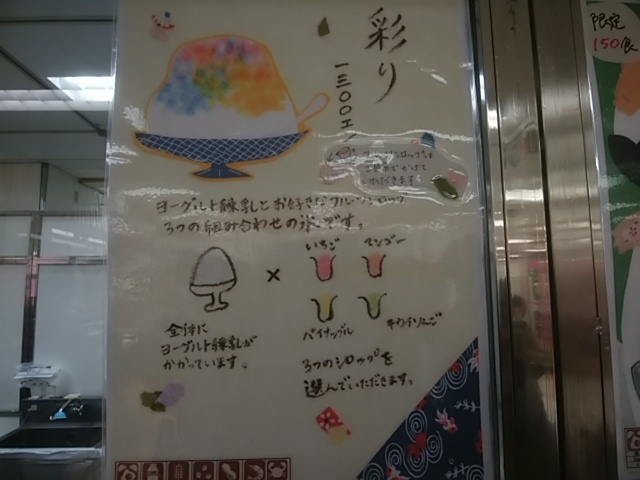 彩り
一三〇〇エン
ヨーグルト練乳とお好きなフルーツシロップ
3つの組み合わせの氷です。
×
いちご
マンゴー
パイナップル
キウイりんご
全体に
ヨーグルト練乳が
かかっています。
3つのシロップを
選んでいただきます。
限定
150食